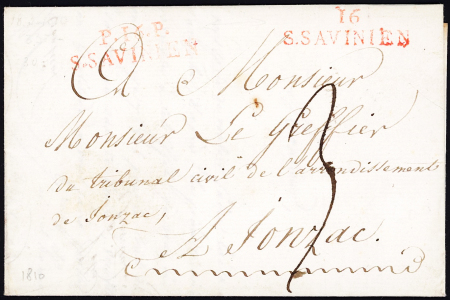 P.16.P.
S.SAVINIEN
16
S.SAVINIEN
A Monsieur
Monsieur Le Greffier
du tribunal civil de l'arrondissement
de Jonzac,
A Jonzac.
3
1810